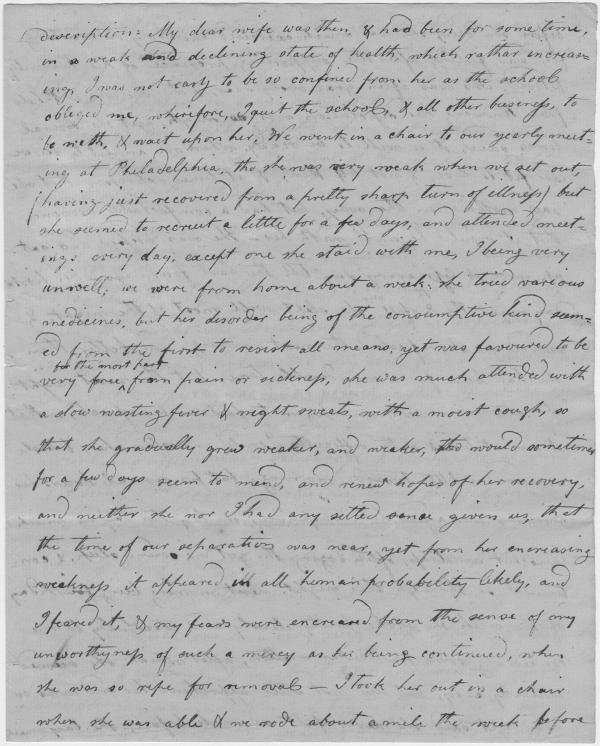 description: My dear wife was then & had been for some time,
in a weak and declining state of health, which rathar increas=
ing, I was not easy to be so confined from her as the school
obliged me, wherefore, I quit the school, & all other business, to
be with, & wait upon her. We went in a chair to our yearly meet-
ing at Philadelphia, tho she was very weak when we set out,
(having just recovered from a pretty sharp turn of illness) but
she seemed to recruit a little for a few days, and attended meet=
ing: every day, except one she staid with me, I being very
unwell; we were from home about a week: she tried various
medicines, but her disorder being of the consumptive kind seem=
ed from the first to resist all means, yet was favoured to be
for the most part
very free from pain or sickness, she was much attended with
a slow wasting fever & night sweats, with a moist cough, so
that she gradually grew weaker, and weaker, tho would sometimes
for a few days seem to mend, and renew hopes of her recovery,
and neither she nor I had any setled sense given us, that
the time of our separation was near, yet from her encreasing
weakness it appeared in all human probability likely, and
I feared it, & my fears were encreased from the sense of my
unworthyness of such a mercy as her being continued, when
she was so ripe for removal — I took her out in a chair
when she was able & we rode about a mile the week before